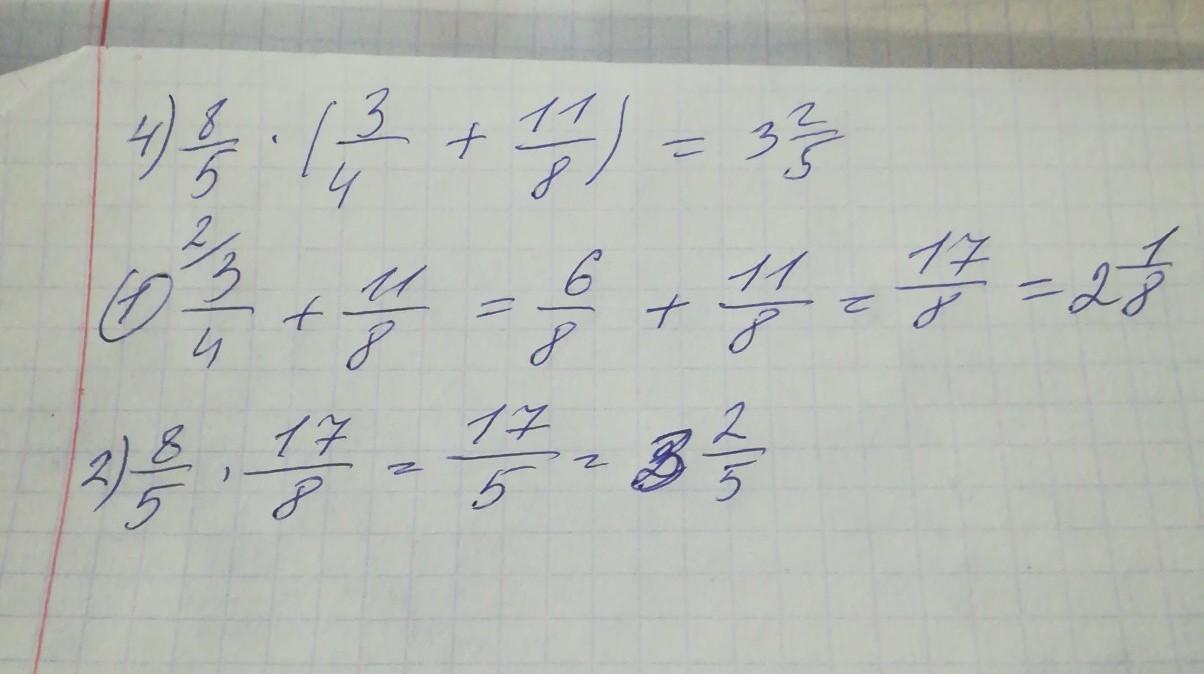 4) 8/5 · (3/4 + 11/8) = 3 2/5
1) 2/ 3/4 + 11/8 = 6/8 + 11/8 = 17/8 = 2 1/8
2) 8/5 · 17/8 = 17/5 = 3 2/5